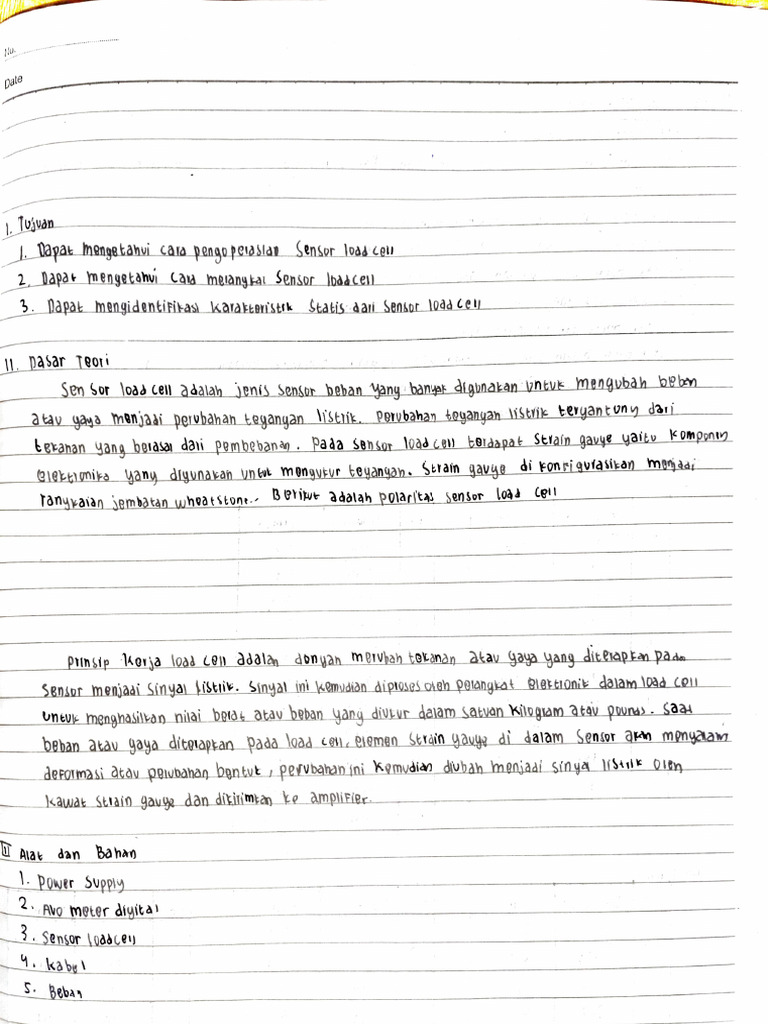 No.
Date
I. Tujuan
1. Dapat mengetahui cara pengoperasian Sensor load cell
2. Dapat mengetahui cara merangkai Sensor loadcell
3. Dapat mengidentifikasi karakteristik Statis dari Sensor load cell
II. Dasar Teori
Sensor load cell adalah jenis sensor beban yang banyak digunakan untuk mengubah beban
atau gaya menjadi perubahan tegangan listrik. Perubahan tegangan listrik tergantung dari
tekanan yang berasal dari pembebanan. Pada sensor load cell terdapat strain gauge yaitu komponen
elektronika yang digunakan untuk mengukur tegangan. Strain gauge di konfigurasikan menjadi
rangkaian jembatan wheatstone.. Berikut adalah polaritas sensor load cell
Prinsip kerja load cell adalah dengan merubah tekanan atau gaya yang diterapkan pada
sensor menjadi sinyal listrik. Sinyal ini kemudian diproses oleh perangkat elektronik dalam load cell
untuk menghasilkan nilai berat atau beban yang diukur dalam satuan kilogram atau pounds. Saat
beban atau gaya diterapkan pada load cell, elemen strain gauge di dalam sensor akan mengalami
deformasi atau perubahan bentuk, perubahan ini kemudian diubah menjadi sinyal listrik oleh
kawat strain gauge dan dikirimkan ke amplifier.
III Alat dan Bahan
1. Power Supply
2. Avo meter digital
3. Sensor loadcell
4. Kabel
5. Beban